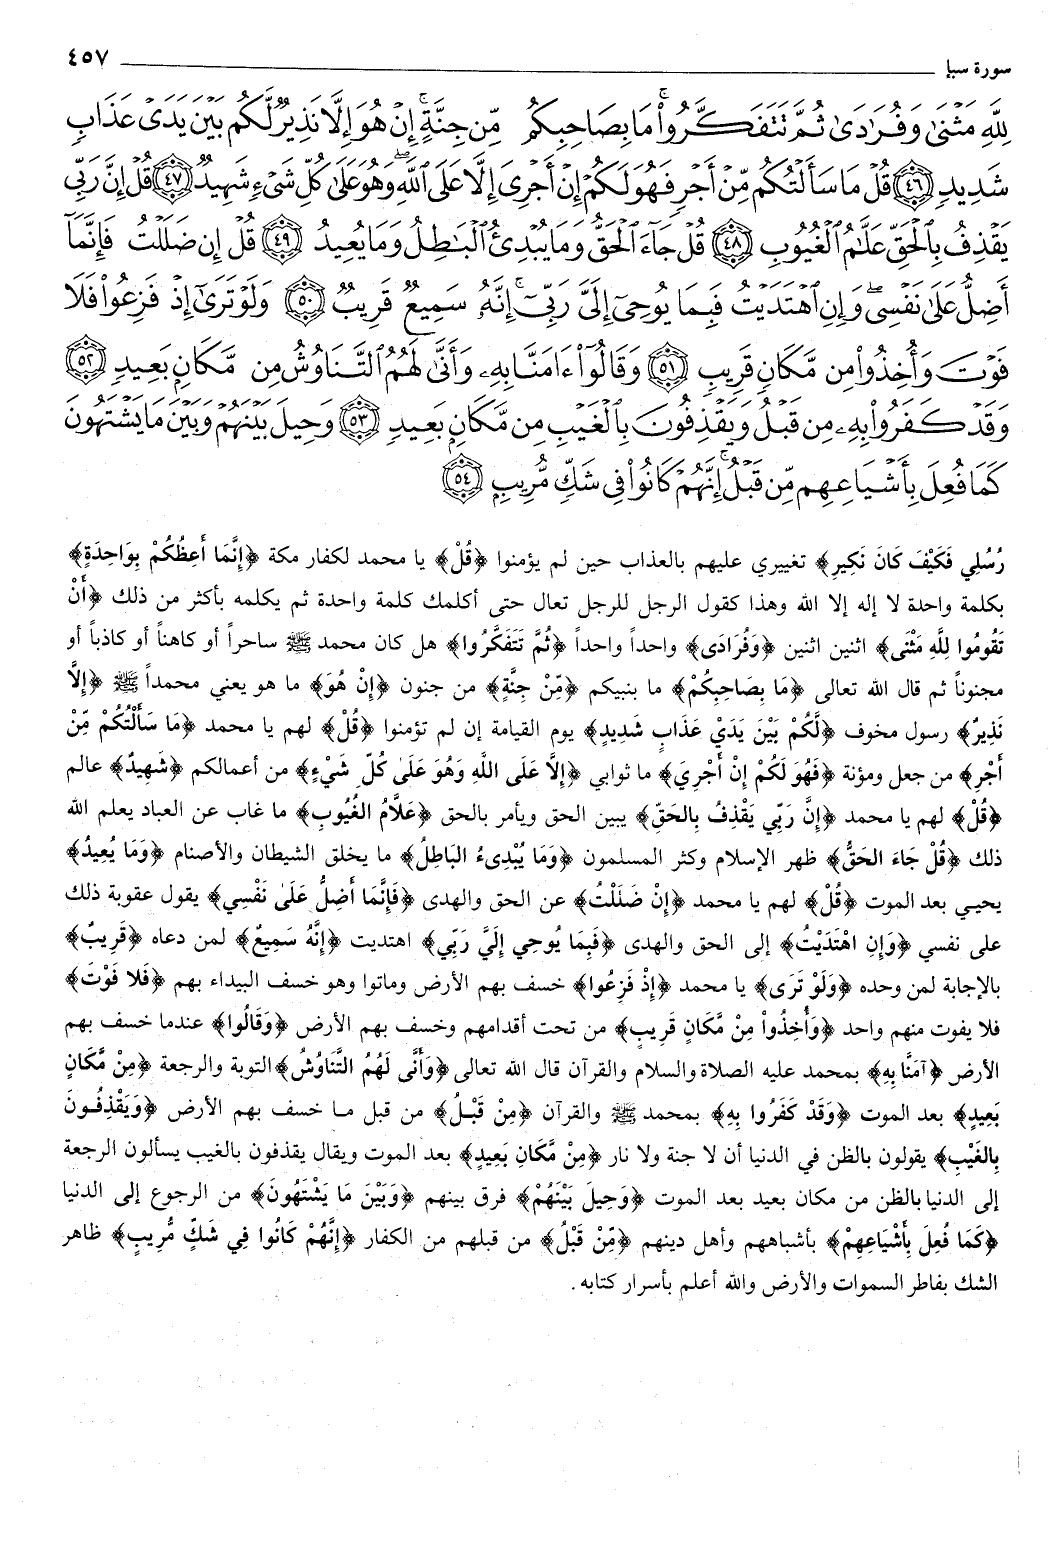 سورة سبإ ٤٥٧
لِلَّهِ مَثْنَىٰ وَفُرَٰدَىٰ ثُمَّ تَتَفَكَّرُوا۟ ۚ مَا بِصَاحِبِكُم مِّن جِنَّةٍ ۚ إِنْ هُوَ إِلَّا نَذِيرٌ لَّكُم بَيْنَ يَدَىْ عَذَابٍ
شَدِيدٍ ٤٦ قُلْ مَا سَأَلْتُكُم مِّنْ أَجْرٍ فَهُوَ لَكُمْ ۖ إِنْ أَجْرِىَ إِلَّا عَلَى ٱللَّهِ ۖ وَهُوَ عَلَىٰ كُلِّ شَىْءٍ شَهِيدٌ ٤٧ قُلْ إِنَّ رَبِّى
يَقْذِفُ بِٱلْحَقِّ عَلَّـٰمُ ٱلْغُيُوبِ ٤٨ قُلْ جَآءَ ٱلْحَقُّ وَمَا يُبْدِئُ ٱلْبَـٰطِلُ وَمَا يُعِيدُ ٤٩ قُلْ إِن ضَلَلْتُ فَإِنَّمَآ
أَضِلُّ عَلَىٰ نَفْسِى ۖ وَإِنِ ٱهْتَدَيْتُ فَبِمَا يُوحِىٓ إِلَىَّ رَبِّىٓ ۚ إِنَّهُۥ سَمِيعٌ قَرِيبٌ ٥٠ وَلَوْ تَرَىٰٓ إِذْ فَزِعُوا۟ فَلَا
فَوْتَ وَأُخِذُوا۟ مِن مَّكَانٍ قَرِيبٍ ٥١ وَقَالُوٓا۟ ءَامَنَّا بِهِۦ وَأَنَّىٰ لَهُمُ ٱلتَّنَاوُشُ مِن مَّكَانٍۭ بَعِيدٍ ٥٢
وَقَدْ كَفَرُوا۟ بِهِۦ مِن قَبْلُ ۖ وَيَقْذِفُونَ بِٱلْغَيْبِ مِن مَّكَانٍۭ بَعِيدٍ ٥٣ وَحِيلَ بَيْنَهُمْ وَبَيْنَ مَا يَشْتَهُونَ
كَمَا فُعِلَ بِأَشْيَاعِهِم مِّن قَبْلُ ۚ إِنَّهُمْ كَانُوا۟ فِى شَكٍّ مُّرِيبٍۭ ٥٤
رُسُلِي فَكَيْفَ كَانَ نَكِيرِ﴾ تغييري عليهم بالعذاب حين لم يؤمنوا ﴿قُلْ﴾ يا محمد لكفار مكة ﴿إِنَّمَا أَعِظُكُمْ بِوَاحِدَةٍ﴾
بكلمة واحدة لا إله إلا الله وهذا كقول الرجل للرجل تعال حتى أكلمك كلمة واحدة ثم يكلمه بأكثر من ذلك ﴿أَنْ
تَقُومُوا لِلَّهِ مَثْنَى﴾ اثنين اثنين ﴿وَفُرَادَى﴾ واحداً واحداً ﴿ثُمَّ تَتَفَكَّرُوا﴾ هل كان محمد ﷺ ساحراً أو كاهناً أو كاذباً أو
مجنوناً ثم قال الله تعالى ﴿مَا بِصَاحِبِكُمْ﴾ ما بنبيكم ﴿مِّنْ جِنَّةٍ﴾ من جنون ﴿إِنْ هُوَ﴾ ما هو يعني محمداً ﷺ ﴿إِلَّا
نَذِيرٌ﴾ رسول مخوف ﴿لَّكُمْ بَيْنَ يَدَيْ عَذَابٍ شَدِيدٍ﴾ يوم القيامة إن لم تؤمنوا ﴿قُلْ﴾ لهم يا محمد ﴿مَا سَأَلْتُكُمْ مِّنْ
أَجْرٍ﴾ من جعل ومؤنة ﴿فَهُوَ لَكُمْ إِنْ أَجْرِيَ﴾ ما ثوابي ﴿إِلَّا عَلَى اللَّهِ وَهُوَ عَلَىٰ كُلِّ شَيْءٍ﴾ من أعمالكم ﴿شَهِيدٌ﴾ عالم
﴿قُلْ﴾ لهم يا محمد ﴿إِنَّ رَبِّي يَقْذِفُ بِالحَقِّ﴾ يبين الحق ويأمر بالحق ﴿عَلَّامُ الغُيُوبِ﴾ ما غاب عن العباد يعلم الله
ذلك ﴿قُلْ جَاءَ الحَقُّ﴾ ظهر الإسلام وكثر المسلمون ﴿وَمَا يُبْدِىءُ البَاطِلُ﴾ ما يخلق الشيطان والأصنام ﴿وَمَا يُعِيدُ﴾
يحيـي بعد الموت ﴿قُلْ﴾ لهم يا محمد ﴿إِنْ ضَلَلْتُ﴾ عن الحق والهدى ﴿فَإِنَّمَا أَضِلُّ عَلَىٰ نَفْسِي﴾ يقول عقوبة ذلك
على نفسي ﴿وَإِنِ اهْتَدَيْتُ﴾ إلى الحق والهدى ﴿فَبِمَا يُوحِي إِلَيَّ رَبِّي﴾ اهتديت ﴿إِنَّهُ سَمِيعٌ﴾ لمن دعاه ﴿قَرِيبٌ﴾
بالإجابة لمن وحده ﴿وَلَوْ تَرَى﴾ يا محمد ﴿إِذْ فَزِعُوا﴾ خسف بهم الأرض وماتوا وهو خسف البيداء بهم ﴿فَلَا فَوْتَ﴾
فلا يفوت منهم واحد ﴿وَأُخِذُوا مِنْ مَّكَانٍ قَرِيبٍ﴾ من تحت أقدامهم وخسف بهم الأرض ﴿وَقَالُوا﴾ عندما خسف بهم
الأرض ﴿آمَنَّا بِهِ﴾ بمحمد عليه الصلاة والسلام والقرآن قال الله تعالى ﴿وَأَنَّى لَهُمُ التَّنَاوُشُ﴾ التوبة والرجعة ﴿مِنْ مَّكَانٍ
بَعِيدٍ﴾ بعد الموت ﴿وَقَدْ كَفَرُوا بِهِ﴾ بمحمد ﷺ والقرآن ﴿مِنْ قَبْلُ﴾ من قبل ما خسف بهم الأرض ﴿وَيَقْذِفُونَ
بِالغَيْبِ﴾ يقولون بالظن في الدنيا أن لا جنة ولا نار ﴿مِنْ مَّكَانٍ بَعِيدٍ﴾ بعد الموت ويقال يقذفون بالغيب يسألون الرجعة
إلى الدنيا بالظن من مكان بعيد بعد الموت ﴿وَحِيلَ بَيْنَهُمْ﴾ فرق بينهم ﴿وَبَيْنَ مَا يَشْتَهُونَ﴾ من الرجوع إلى الدنيا
﴿كَمَا فُعِلَ بِأَشْيَاعِهِمْ﴾ بأشباههم وأهل دينهم ﴿مِّنْ قَبْلُ﴾ من قبلهم من الكفار ﴿إِنَّهُمْ كَانُوا فِي شَكٍّ مُّرِيبٍ﴾ ظاهر
الشك بفاطر السموات والأرض والله أعلم بأسرار كتابه.